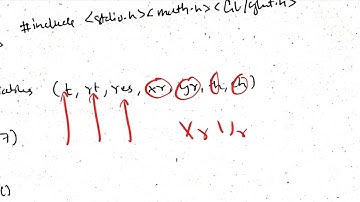 #include <stdio.h> <math.h> <GL/glut.h>
(t, rt, res, xr, yr, h, k)
xr yr
7)
()